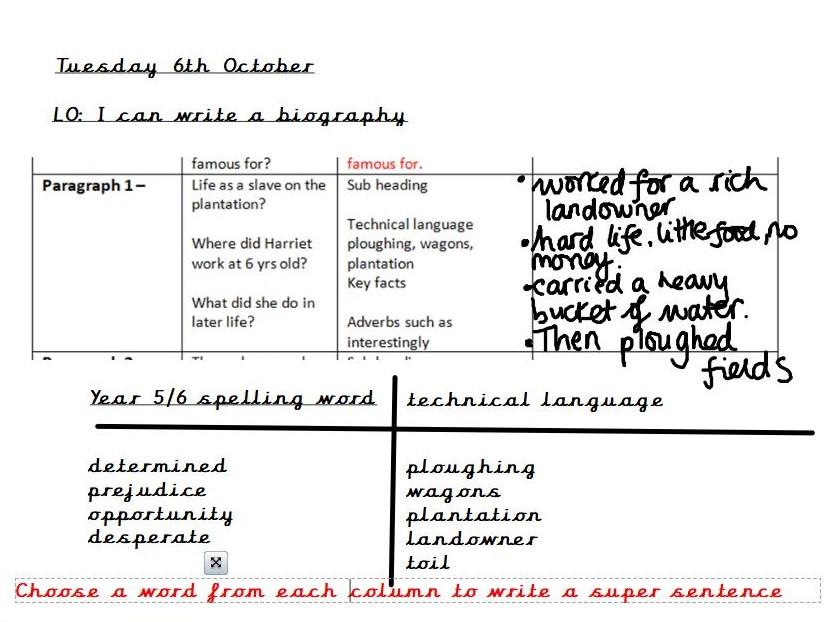 Tuesday 6th October
LO: I can write a biography
famous for?
famous for.
Paragraph 1 –
Life as a slave on the
plantation?
Where did Harriet
work at 6 yrs old?
What did she do in
later life?
Sub heading
Technical language
ploughing, wagons,
plantation
Key facts
Adverbs such as
interestingly
• worked for a rich
landowner
• hard life, little food, no
money.
• carried a heavy
bucket of water.
• Then ploughed
fields
Year 5/6 spelling word
determined
prejudice
opportunity
desperate
technical language
ploughing
wagons
plantation
landowner
toil
Choose a word from each column to write a super sentence